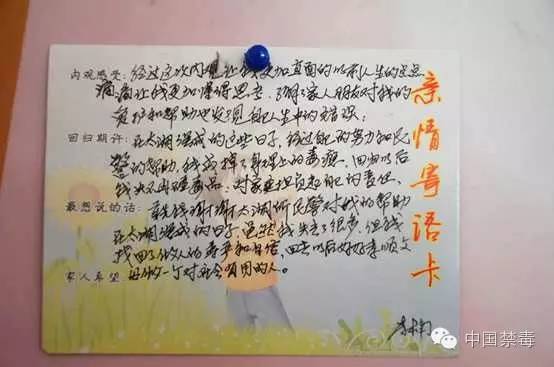 亲情寄语卡
内观感受：经过这次内观让我更加直面的审示人生的点点
滴滴让我更加懂得思考，了解了家人朋友对我的
支持和帮助也发现自己人生中的错误；
回归期许：在太湖强戒的这些日子，经过自己的努力和民
警的帮助，我戒掉了身理上的毒瘾，回归以后
我决不再碰毒品，对家庭担负起自己的责任。
最想说的话：首先得谢谢太湖所民警对我的帮助
在太湖强戒的日子，虽然我失去了很多，但我
找回了做人的尊严和自信，回去以后好好孝顺父
家人希望 母做一个对社会有用的人。
中国禁毒